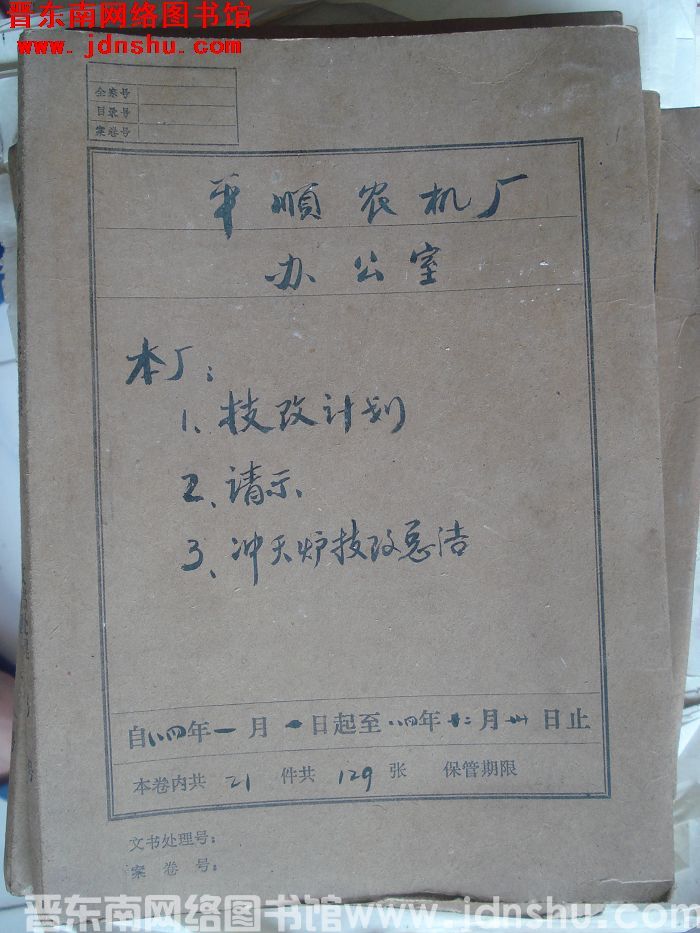 晋东南网络图书馆
www.jdnshu.com
全宗号
目录号
案卷号
平顺农机厂
办公室
本厂:
1、技改计划
2、请示
3、冲天炉技改总结
自八四年一月一日起至八四年十二月卅日止
本卷内共 21 件共 129 张 保管期限
文书处理号:
案卷号:
晋东南网络图书馆www.jdnshu.com